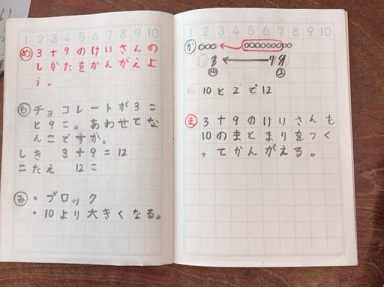 1 2 3 4 5 6 7 8 9 10
め 3+9のけいさんの
しかたをかんがえよ
う。
も チョコレートが3こ
と9こ。あわせてな
んこですか。
しき 3+9=12
こたえ 12こ
み ・ブロック
・10より大きくなる。
1 2 3 4 5 6 7 8 9 10
か
3 9
⑩ ②
10と2で12
ま 3+9のけいさんも
10のまとまりをつく
ってかんがえる。